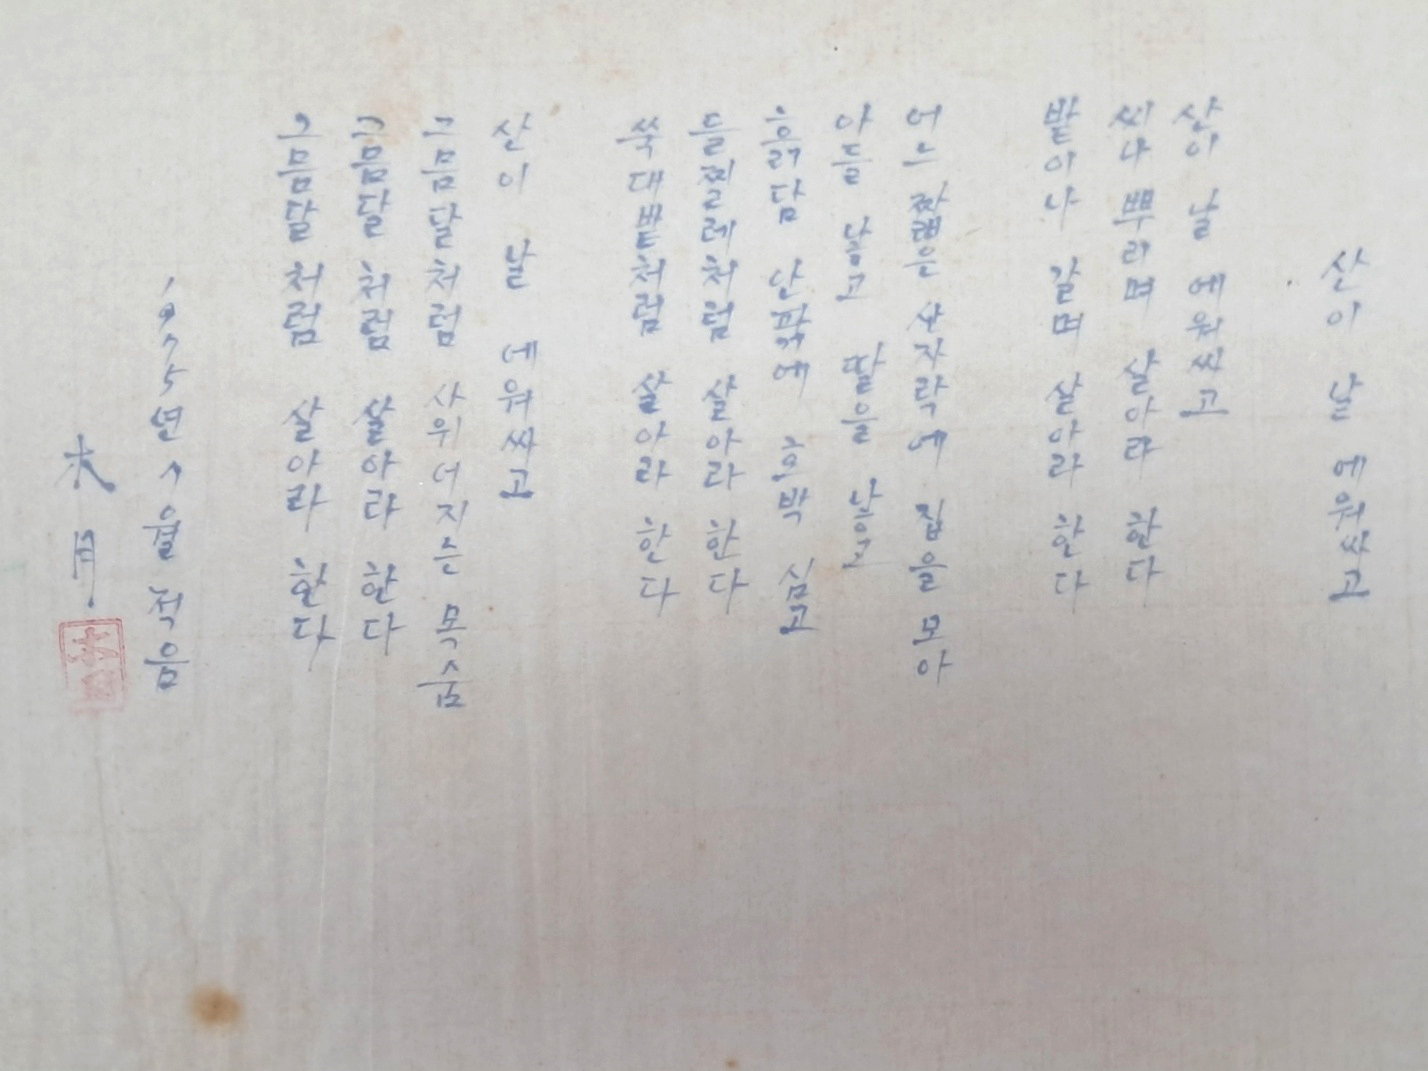 산이 날 에워싸고
산이 날 에워싸고
씨나 뿌리며 살아라 한다
밭이나 갈며 살아라 한다
어느 짧은 산자락에 집을 모아
아들 낳고 딸을 낳고
흙담 안팎에 호박 심고
들찔레처럼 살아라 한다
쑥대밭처럼 살아라 한다
산이 날 에워싸고
그믐달처럼 사위어지는 목숨
그믐달처럼 살아라 한다
그믐달처럼 살아라 한다
1975년 1월 적음
木月